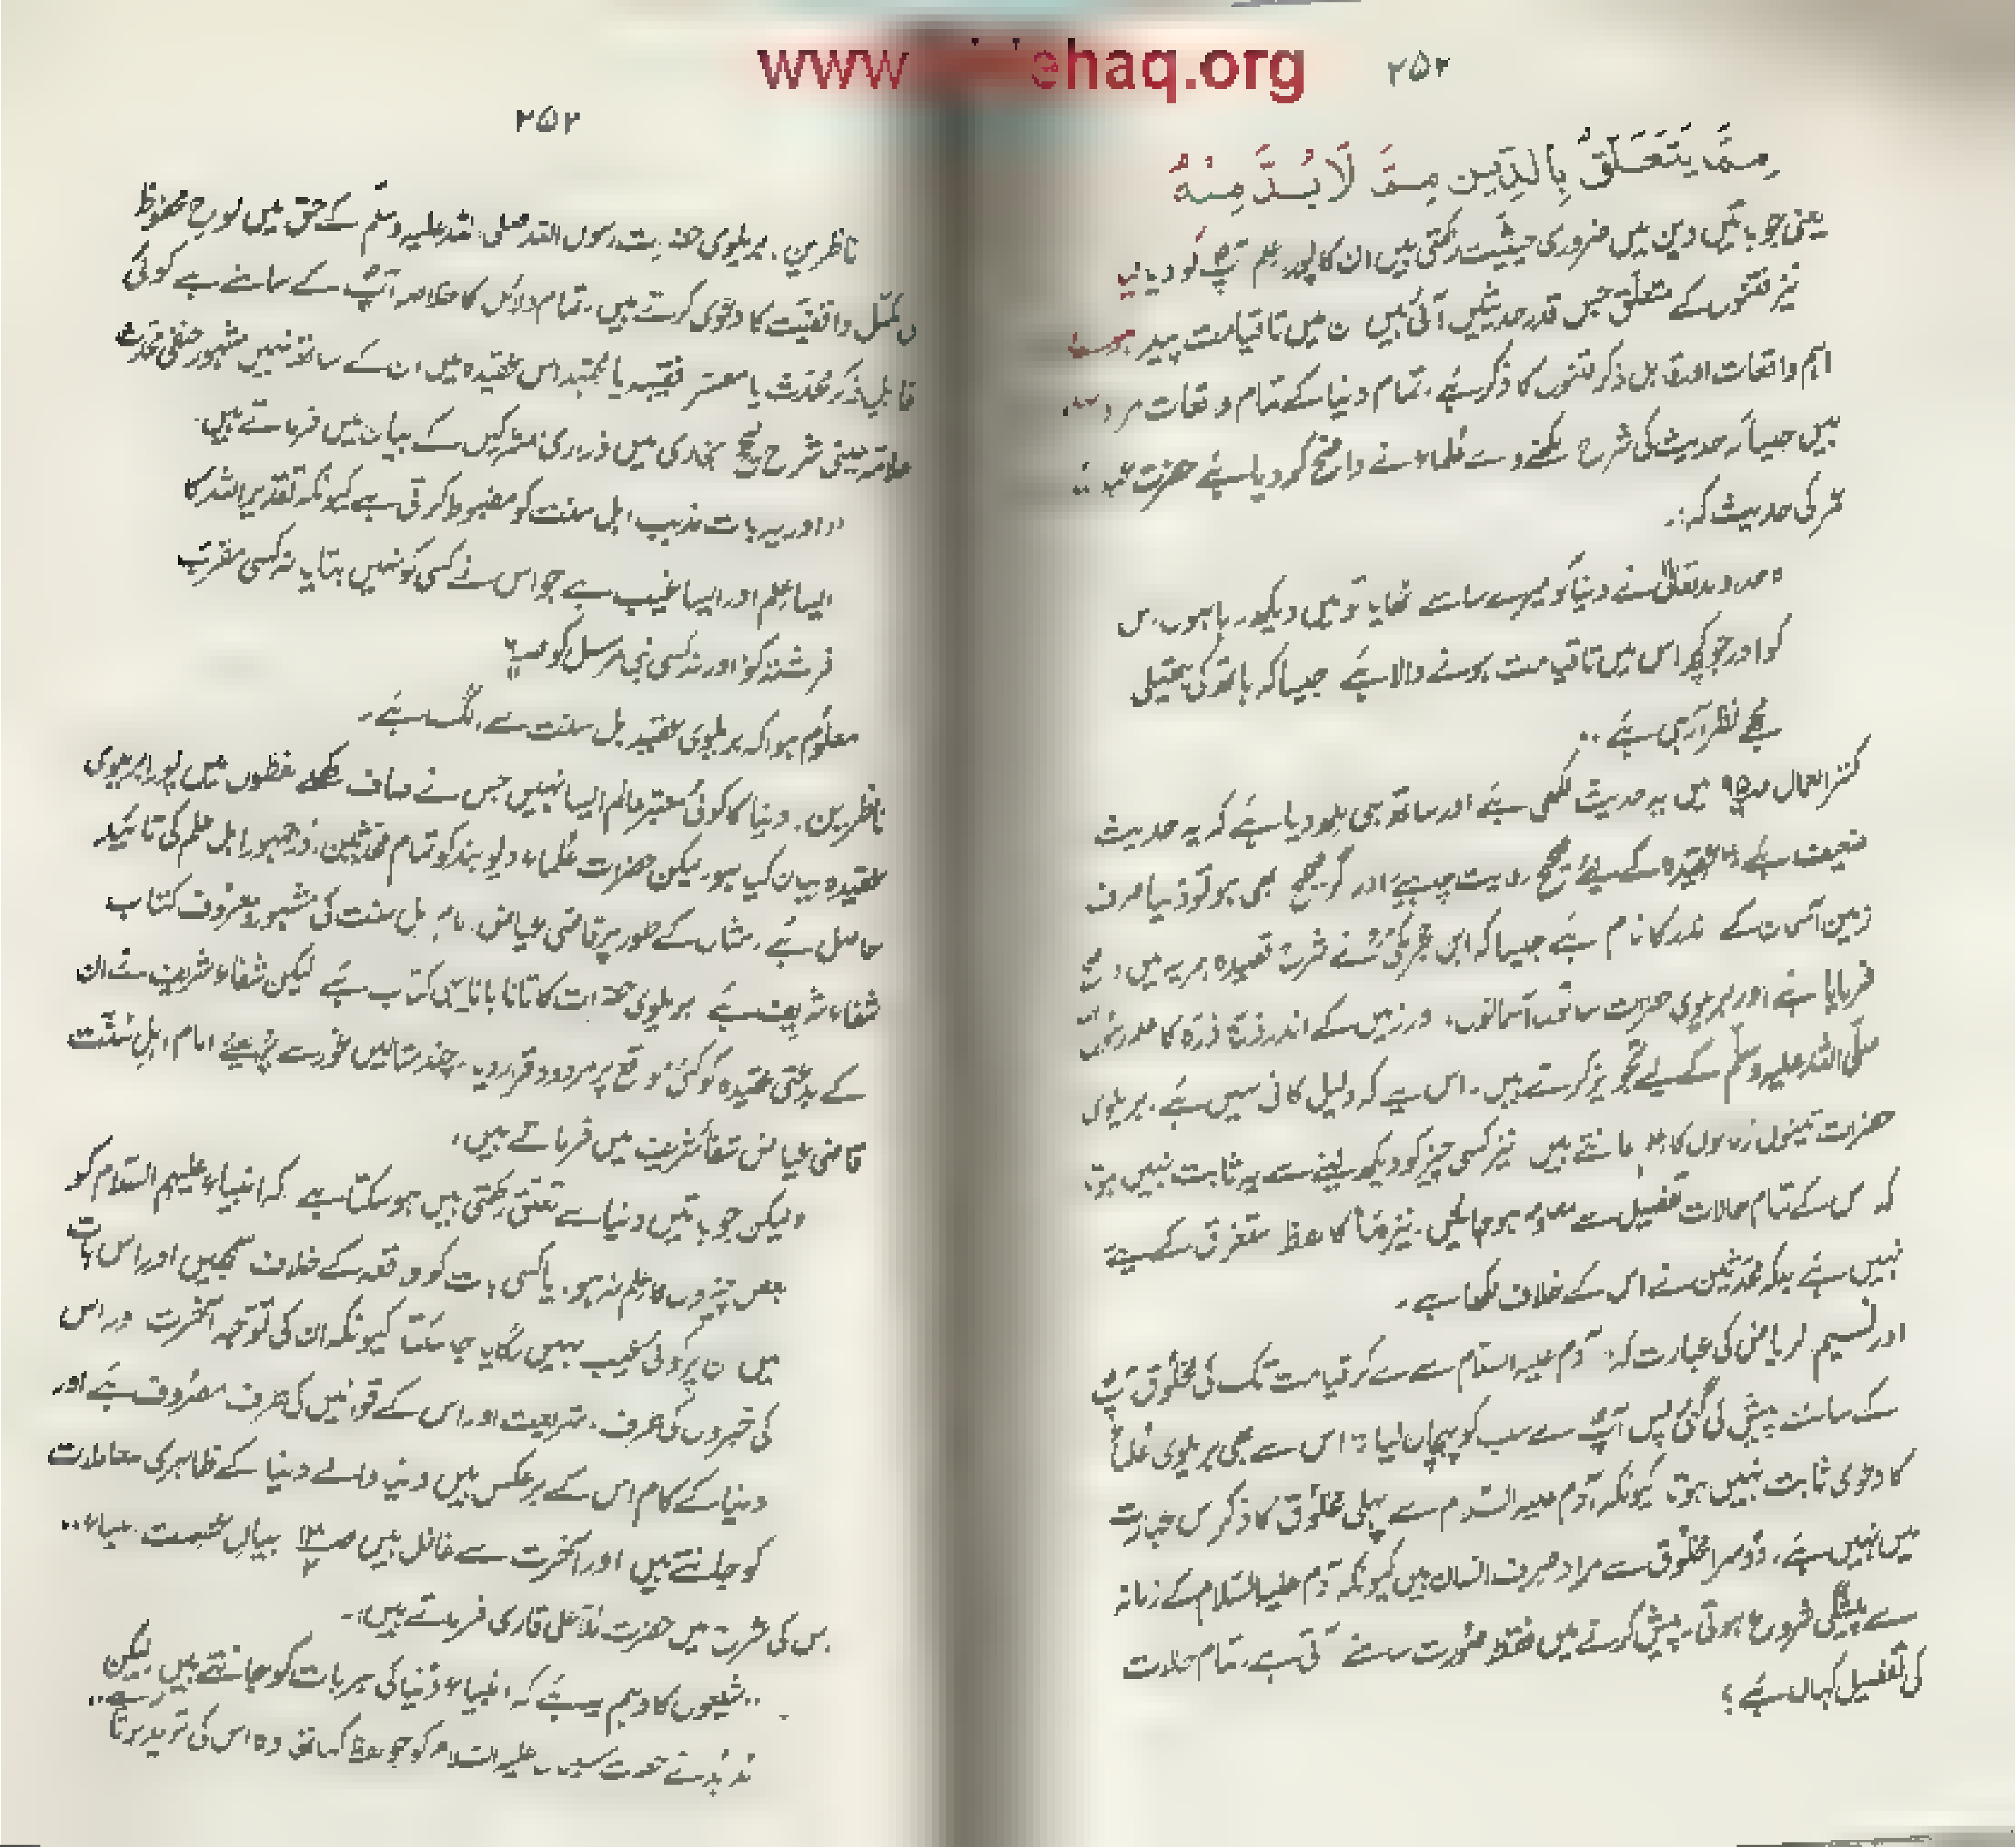 ۲۵۲
مِمَّا يَتَعَلَّقُ بِالدِّينِ مِمَّا لَابُدَّ مِنْهُ
یعنی جو باتیں دین میں ضروری حیثیت رکھتی ہیں ان کا پورا علم آپؐ کو دیا
نیز فتنوں کے متعلق جس قدر حدیثیں آئی ہیں ن میں تا قیامت پیدا ہونے
اہم واقعات اور قابل ذکر فتنوں کا ذکر ہے، تمام دنیا کے تمام و قعات مراد
ہیں جیسا کہ حدیث کی شرح لکھنے و لے علماء نے واضح کر دیا ہے حضرت
عمر کی حدیث کہ:۔
تعالیٰ نے دنیا کو میرے سامنے اٹھایا تو میں دیکھ رہا ہوں اس
کو اور جو کچھ اس میں تا قیامت ہونے والا ہے جیسا کہ ہاتھ کی ہتھیلی
مجھے نظر آ رہی ہے ،،
کنز العمال ص۹۵ میں یہ حدیث لکھی ہے اور ساتھ ہی لکھ دیا ہے کہ یہ حدیث
ضعیف ہے عقیدہ کے لیے صحیح روایت چاہیے اور گر صحیح بھی ہو تو دنیا صرف
زمین آسمان کے ندر کا نام ہے جیسا کہ ابن حجر مکیؒ نے شرح قصیدہ ہمزیہ میں واضح
فرمایا ہے اور بریلوی حضرات ساتوں آسمانوں، ور زمین کے اندر ذرہ ذرہ کا علم
صلّی اللہ علیہ وسلّم کے لیے تجویز کرتے ہیں۔ اس لیے کہ دلیل کافی نہیں ہے۔ بریلوی
حضرات تینوں زمانوں کا علم مانتے ہیں نیز کسی چیز کو دیکھ لینے سے یہ ثابت نہیں ہوتا
کہ س کے تمام حالات تفصیل سے معلوم ہو جائیں۔ نیز کا لفظ ستغرق کے لیے
نہیں ہے بلکہ محدثین نے اس کے خلاف لکھا ہے۔
اور نسیم لریاض کی عبارت کہ: آدم علیہ السلام سے لے کر قیامت تک کی مخلوق آپؐ
کے سامنے پیش کی گئی پس آپؐ نے سب کو پہچان لیا؛ اس سے بھی بریلوی
کا دعویٰ ثابت نہیں ہوتا کیونکہ آدم علیہ السلام سے پہلی مخلوق کا ذکر س عبارت
میں نہیں ہے، دوسرا مخلوق سے مراد صرف انسان ہیں کیونکہ آدم علیہ السلام کے زمانہ
سے پیشگی شروع ہوتی۔ پیش کرنے میں فقط صورت سامنے آتی ہے، تمام حالات
کی تفصیل کہاں ہے؟
۲۵۲
ناظرین۔ بریلوی حضرات رسول اللہ صلی اللہ علیہ وسلّم کے حق میں لوح محفوظ
و مکمّل واقفیّت کا دعویٰ کرتے ہیں، تمام دلائل کا خلاصہ آپؐ کے سامنے ہے کوئی
قابل ذکر محدّث یا مفسّر فقیہ یا مجتہد اس عقیدہ میں ان کے ساتھ نہیں مشہور حنفی محدّث
علامہ عینی شرح صحیح بخاری میں ذراری مشرکین کے بیان میں فرماتے ہیں۔
،، اور یہ بات مذہب اہل سنت کو مضبوط کرتی ہے کیونکہ تقدیر اللہ کا
ایسا علم اور ایسا غیب ہے جو اس نے کسی کو نہیں بتایا نہ کسی مقرب
فرشتہ کو اور نہ کسی نبی مرسل کو
معلوم ہوا کہ بریلوی عقیدہ ہل سنت سے الگ ہے۔
ناظرین۔ دنیا کا کوئی معتبر عالم ایسا نہیں جس نے صاف کھلے لفظوں میں پورا بریلوی
عقیدہ بیان کیا ہو، لیکن حضرات علماء دیوبند کو تمام محدثین، ور جمہور اہل علم کی تائید
حاصل ہے، مثال کے طور پر قاضی عیاض، امام ہل سنت کی مشہور و معروف کتاب
شفاء شریف ہے بریلوی حضرات کا تانا بانا یہی کتاب ہے لیکن شفاء شریف نے ان
کے بدعتی عقیدہ کو کئی موقع پر مردود قرار دیا۔ چند مثالیں غور سے پڑھیئے امام اہل سنّت
قاضی عیاض شفاء شریف میں فرماتے ہیں،
ولیکن جو باتیں دنیا سے تعلق رکھتی ہیں ہو سکتا ہے کہ انبیاء علیہم السّلام کو
بعض چیزوں کا علم نہ ہو، یا کسی بات کو و قعہ کے خلاف سمجھیں اور اس بات
میں ن پر کوئی عیب نہیں لگایا جا سکتا کیونکہ ان کی توجّہ آخرت ور اس
کی خبروں کی طرف، شریعت اور اس کے قوانین کی طرف مصروف ہے اور
دنیا کے کام اس کے برعکس ہیں دنیا والے دنیا کے ظاہری معاملات
کو جانتے ہیں اور آخرت سے غافل ہیں ص بیان عصمت نبیاء،،
س کی شرح میں حضرت ملّا علی قاری فرماتے ہیں،۔
،، شیعوں کا وہم یہ ہے کہ انبیاء دنیا کی ہر بات کو جانتے ہیں لیکن
ہُدہُد نے حضرت سلیمان علیہ السلام کو جو لفظ کہا تھا وہ اس کی تردید کرتا ہے،،